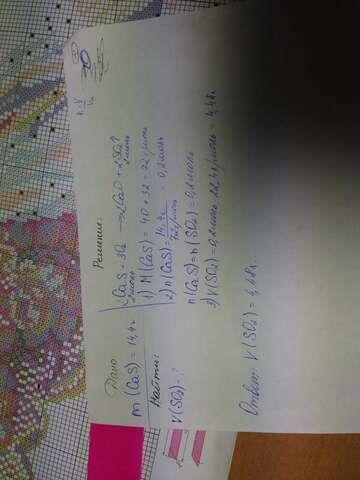 Дано
m (CaS) = 14,4г
Найти:
V(SO₂) - ?
Решение:
2CaS + 3O₂ → 2CaO + 2SO₂↑
2моль 2моль
1) M (CaS) = 40 + 32 = 72г/моль
2) n (CaS) = 14,4г / 72г/моль = 0,2моль
n(CaS) = n(SO₂) = 0,2моль
3) V(SO₂) = 0,2моль · 22,4г/моль = 4,48л
Ответ: V(SO₂) = 4,48л.